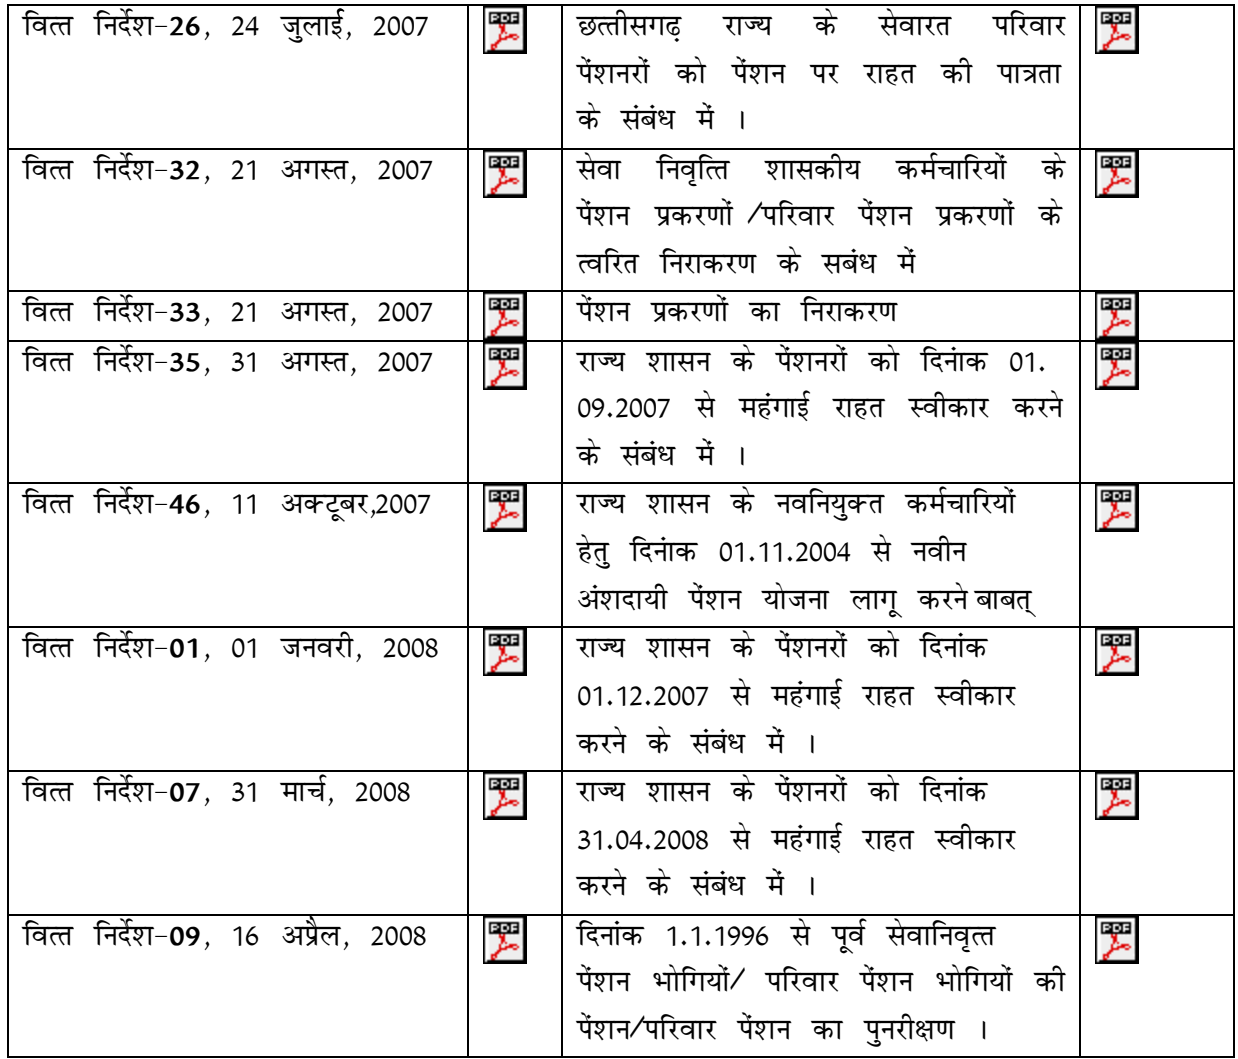 वित्त निर्देश-26, 24 जुलाई, 2007
PDF
छत्तीसगढ़ राज्य के सेवारत परिवार
पेंशनरों को पेंशन पर राहत की पात्रता
के संबंध में ।
PDF
वित्त निर्देश-32, 21 अगस्त, 2007
PDF
सेवा निवृत्ति शासकीय कर्मचारियों के
पेंशन प्रकरणों /परिवार पेंशन प्रकरणों के
त्वरित निराकरण के सबंध में
PDF
वित्त निर्देश-33, 21 अगस्त, 2007
PDF
पेंशन प्रकरणों का निराकरण
PDF
वित्त निर्देश-35, 31 अगस्त, 2007
PDF
राज्य शासन के पेंशनरों को दिनांक 01.
09.2007 से महंगाई राहत स्वीकार करने
के संबंध में ।
PDF
वित्त निर्देश-46, 11 अक्टूबर,2007
PDF
राज्य शासन के नवनियुक्त कर्मचारियों
हेतु दिनांक 01.11.2004 से नवीन
अंशदायी पेंशन योजना लागू करने बाबत्
PDF
वित्त निर्देश-01, 01 जनवरी, 2008
PDF
राज्य शासन के पेंशनरों को दिनांक
01.12.2007 से महंगाई राहत स्वीकार
करने के संबंध में ।
PDF
वित्त निर्देश-07, 31 मार्च, 2008
PDF
राज्य शासन के पेंशनरों को दिनांक
31.04.2008 से महंगाई राहत स्वीकार
करने के संबंध में ।
PDF
वित्त निर्देश-09, 16 अप्रैल, 2008
PDF
दिनांक 1.1.1996 से पूर्व सेवानिवृत्त
पेंशन भोगियों/ परिवार पेंशन भोगियों की
पेंशन/परिवार पेंशन का पुनरीक्षण ।
PDF